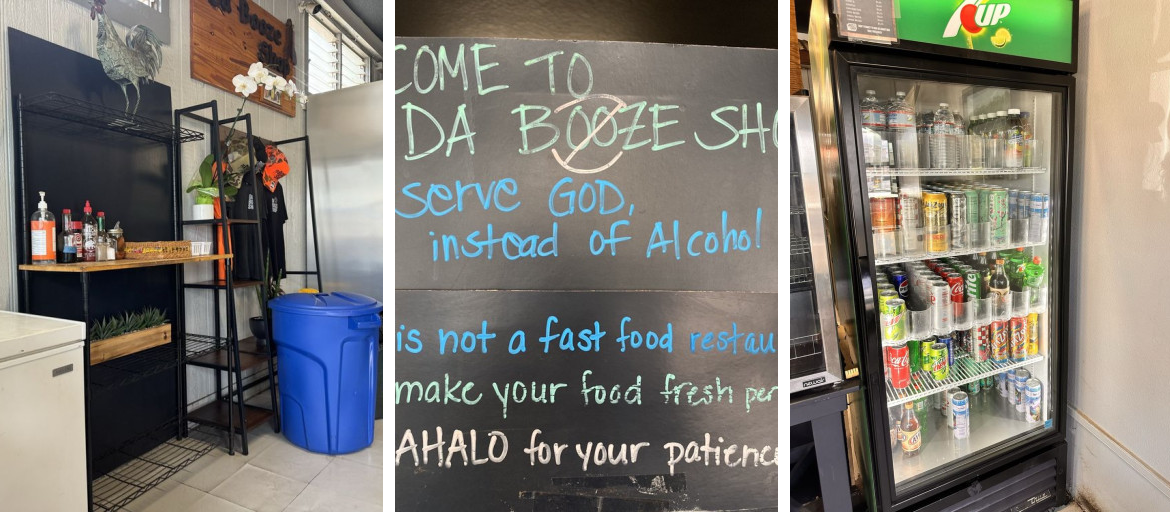 Booze
COME TO
DA BOOZE SHO
serve GOD,
instead of Alcohol
is not a fast food restau
make your food fresh per
AHALO for your patience
7UP